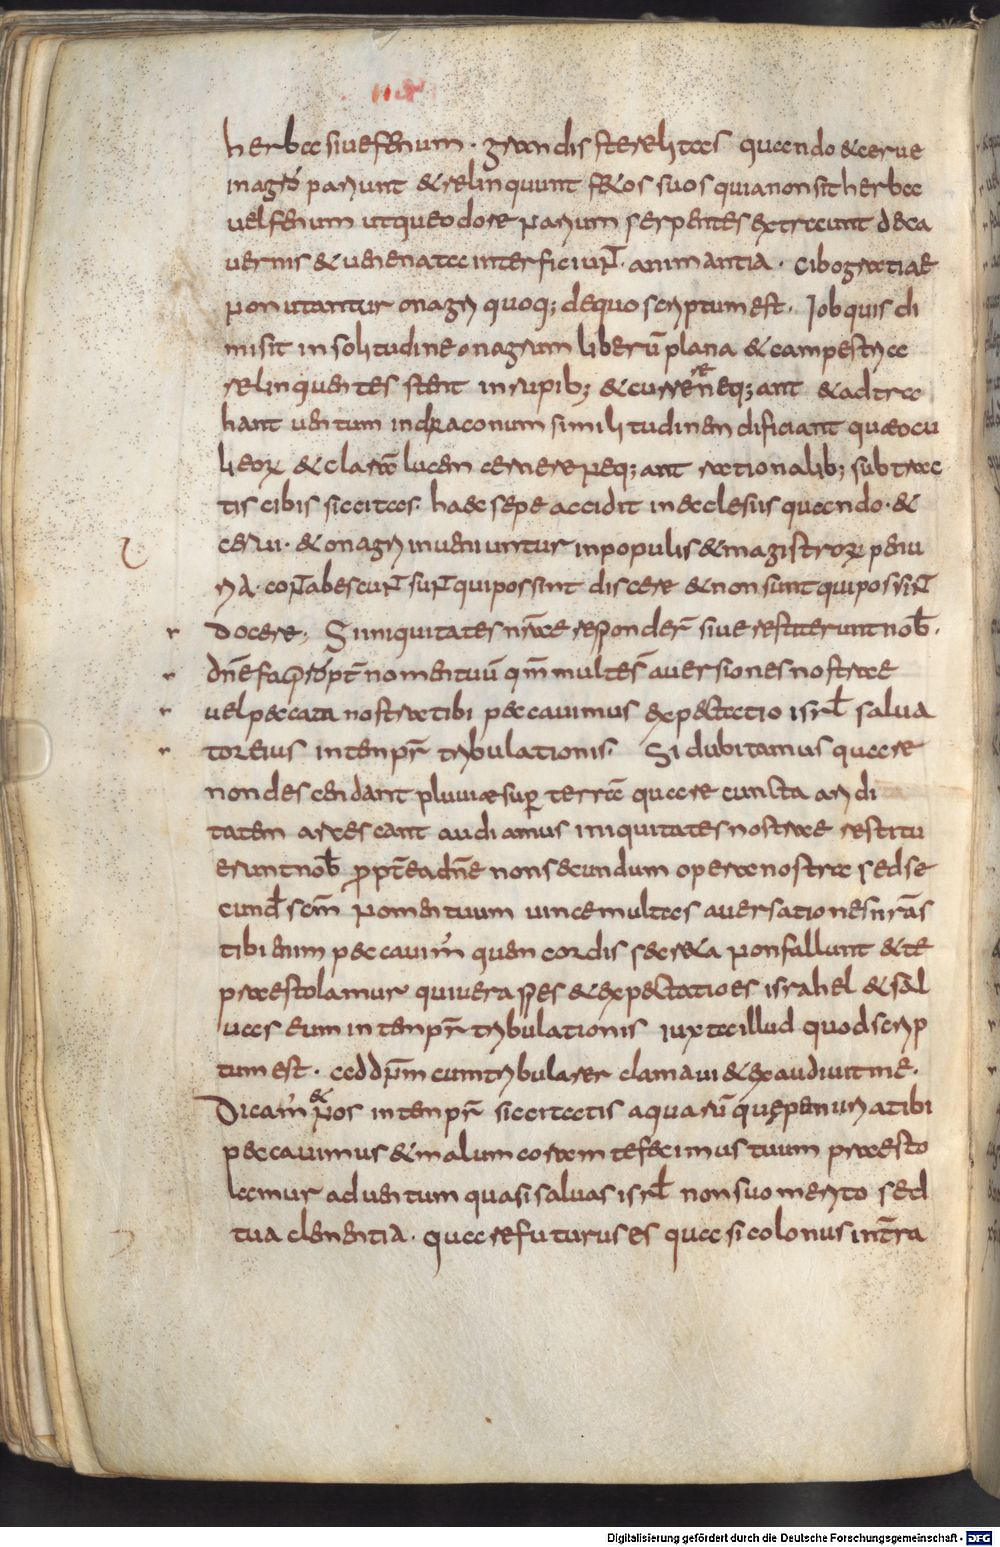 herba siue fenum · grandis sterelitas quando & ceruae
in agrō pariunt & relinquunt f&os suos quia non sit herba
uel fenum utque odore narium serpentes extraunt de ca
uernis & uenenata interficiunt · animantia · cibo gratiae
non utantur onagri quoq; de quo scriptum est · Iob quis di
misit in solitudine onagrum liberū plana & campestria
relinquentes stent in rupib; & currere neq;ant & adtra
hant uentum in draconum similitudinem dificiant quæ ocu
li eorum & claram lucem cernere neq;ant rationalib; subtrac
tis cibis siccitas · haec sepe accidit in ecclesiis quando · &
cerui · & onagri inueniuntur in populis & magistrorum penu
ria · contabescunt sunt qui possint discere & non sunt qui possint
docere; Si iniquitates nrae responderint siue restiterunt nob̄ ·
dn̄e fac propt̄ nomen tuū qm̄ multe st̄ auersiones nostrae
uel peccata nostra tibi peccauimus expectatio isrl̄ salua
tor eius in tempr̄ tribulationis · Si dubitamus quare
non descendant pluuiæ sup̄ terrā quare cuncta aridi
tatem arescant audiamus iniquitates nostrae restitu
erunt nob̄ propt̄ea dn̄e non secundum opera nostra sed se
cund̄ scm̄ nomen tuum uince multas auersationes nr̄as
tibi enim peccauim̄ quem cordis secr&a non fallunt & te
praestolamur qui uera spes & expectatio es israhel & sal
uas eum in tempr̄ tribulationis iuxta illud quod scrip
tum est · ad dn̄m cum tribularer clamaui & exaudiuit me ·
Dicam̄ & nos in tempr̄ siccitatis aquarū quę penuria tibi
peccauimus & malum coram te fecimus tuum praesto
lamur aduentum quasi saluas isrl̄ non suo merito sed
tua clementia · quare futurus es quasi colonus in t̄ra
Digitalisierung gefördert durch die Deutsche Forschungsgemeinschaft - DFG